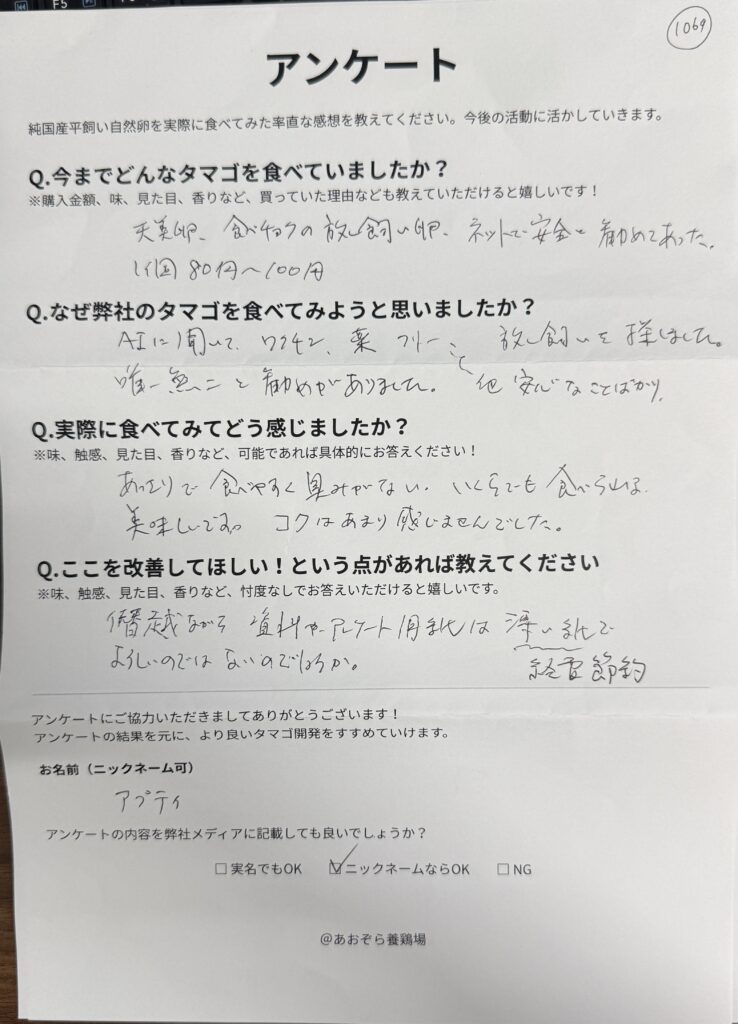 F5
1069
アンケート
純国産平飼い自然卵を実際に食べてみた率直な感想を教えてください。今後の活動に活かしていきます。
Q.今までどんなタマゴを食べていましたか？
※購入金額、味、見た目、香りなど、買っていた理由なども教えていただけると嬉しいです！
天美卵、食べチョクの放し飼い卵、ネットで安全と勧めてあった。
1個80円〜100円
Q.なぜ弊社のタマゴを食べてみようと思いましたか？
AIに聞いて、ワクチン、薬フリー 放し飼いを探しました。
唯一無二と勧めがありました。 他 安心なことばかり、
Q.実際に食べてみてどう感じましたか？
※味、触感、見た目、香りなど、可能であれば具体的にお答えください！
あっさりで食べやすく臭みがない、いくらでも食べられる。
美味しいです。 コクはあまり感じませんでした。
Q.ここを改善してほしい！という点があれば教えてください
※味、触感、見た目、香りなど、忖度なしでお答えいただけると嬉しいです。
僭越ながら 資料や、アンケート用紙は 薄い紙で
よろしいのではないのでしょうか。
経費節約
アンケートにご協力いただきましてありがとうございます！
アンケートの結果を元に、より良いタマゴ開発をすすめていけます。
お名前（ニックネーム可）
アプティ
アンケートの内容を弊社メディアに記載しても良いでしょうか？
□ 実名でもOK ☑ ニックネームならOK □ NG
@あおぞら養鶏場